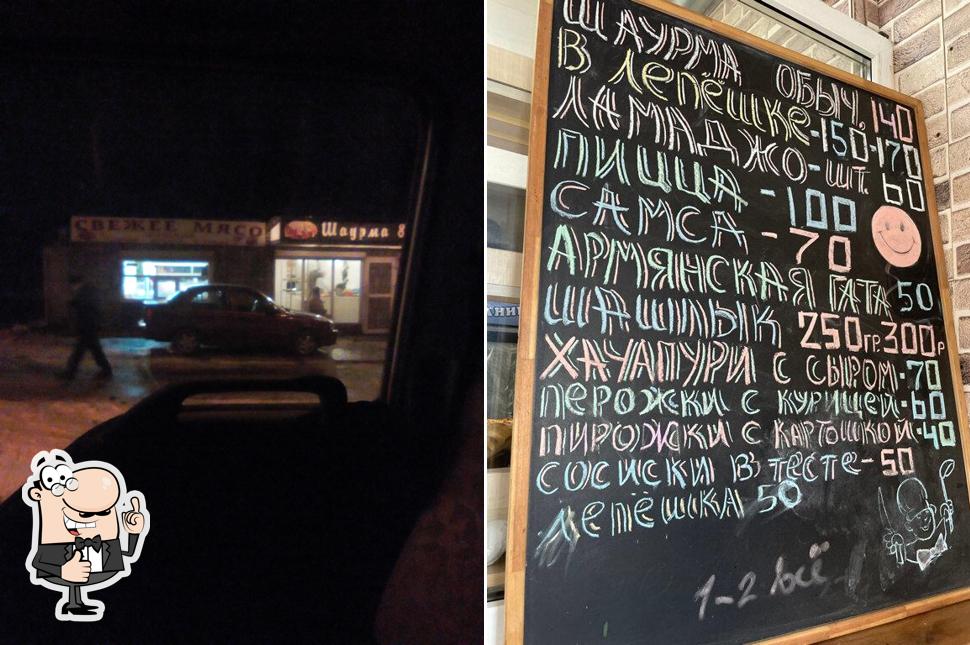 СВЕЖЕЕ МЯСО
Шаурма 8
ШАУРМА ОБЫЧ. 140
В ЛЕПЁШКЕ-150-170
ЛАМАДЖО-ШТ. 60
ПИЦЦА -100
САМСА -70
АРМЯНСКАЯ ГАТА 50
ШАШЛЫК 250ГР.300Р
ХАЧАПУРИ С СЫРОМ-70
ПЕРОЖКИ С КУРИЦЕЙ-60
ПИРОЖКИ С КАРТОШКОЙ-40
СОСИСКИ В ТЕСТЕ-50
ЛЕПЁШКА 50
1-2 всё